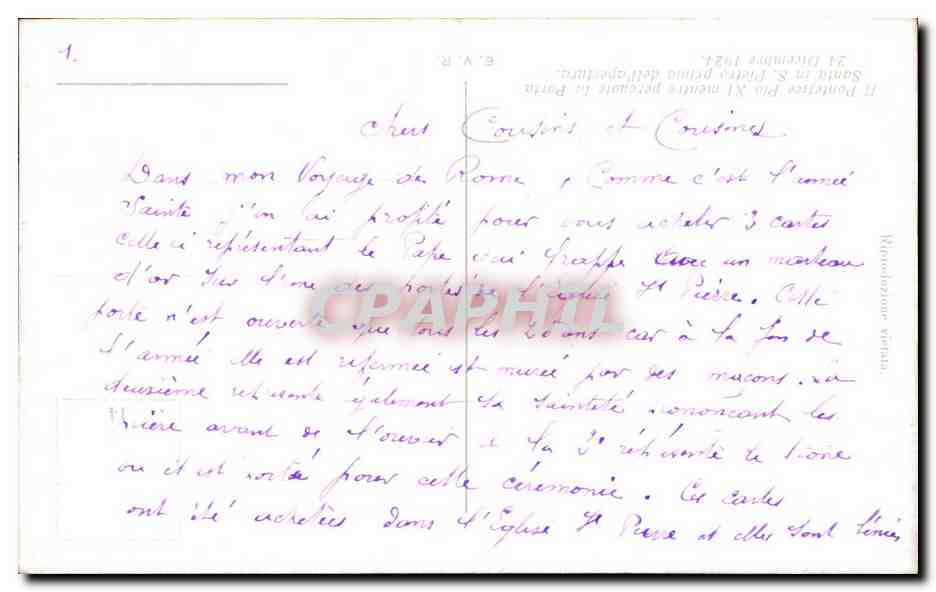 1.
Il Pontefice Pio XI mentre percuote la Porta
Santa in S. Pietro prima dell'apertura.
24 Dicembre 1924.
E. V. R.
Chers Cousins et Cousines
Dans mon Voyage de Rome, Comme c'est l'année
Sainte j'en ai profité pour vous acheter 3 cartes
celle ci représentant le Pape qui frappe avec un marteau
d'or sur l'une des portes de l'église St Pierre. Cette
porte n'est ouverte que tous les 25 ans car à la fin de
l'année elle est refermée et murée par des maçons. La
deuxième représente également sa Sainteté prononçant les
prière avant de l'ouvrir et la 3e représente le trône
ou il est porté pour cette cérémonie. Ces cartes
ont été achetées dans l'Eglise St Pierre et elles sont bénies
Riproduzione vietata
CPAPHIL